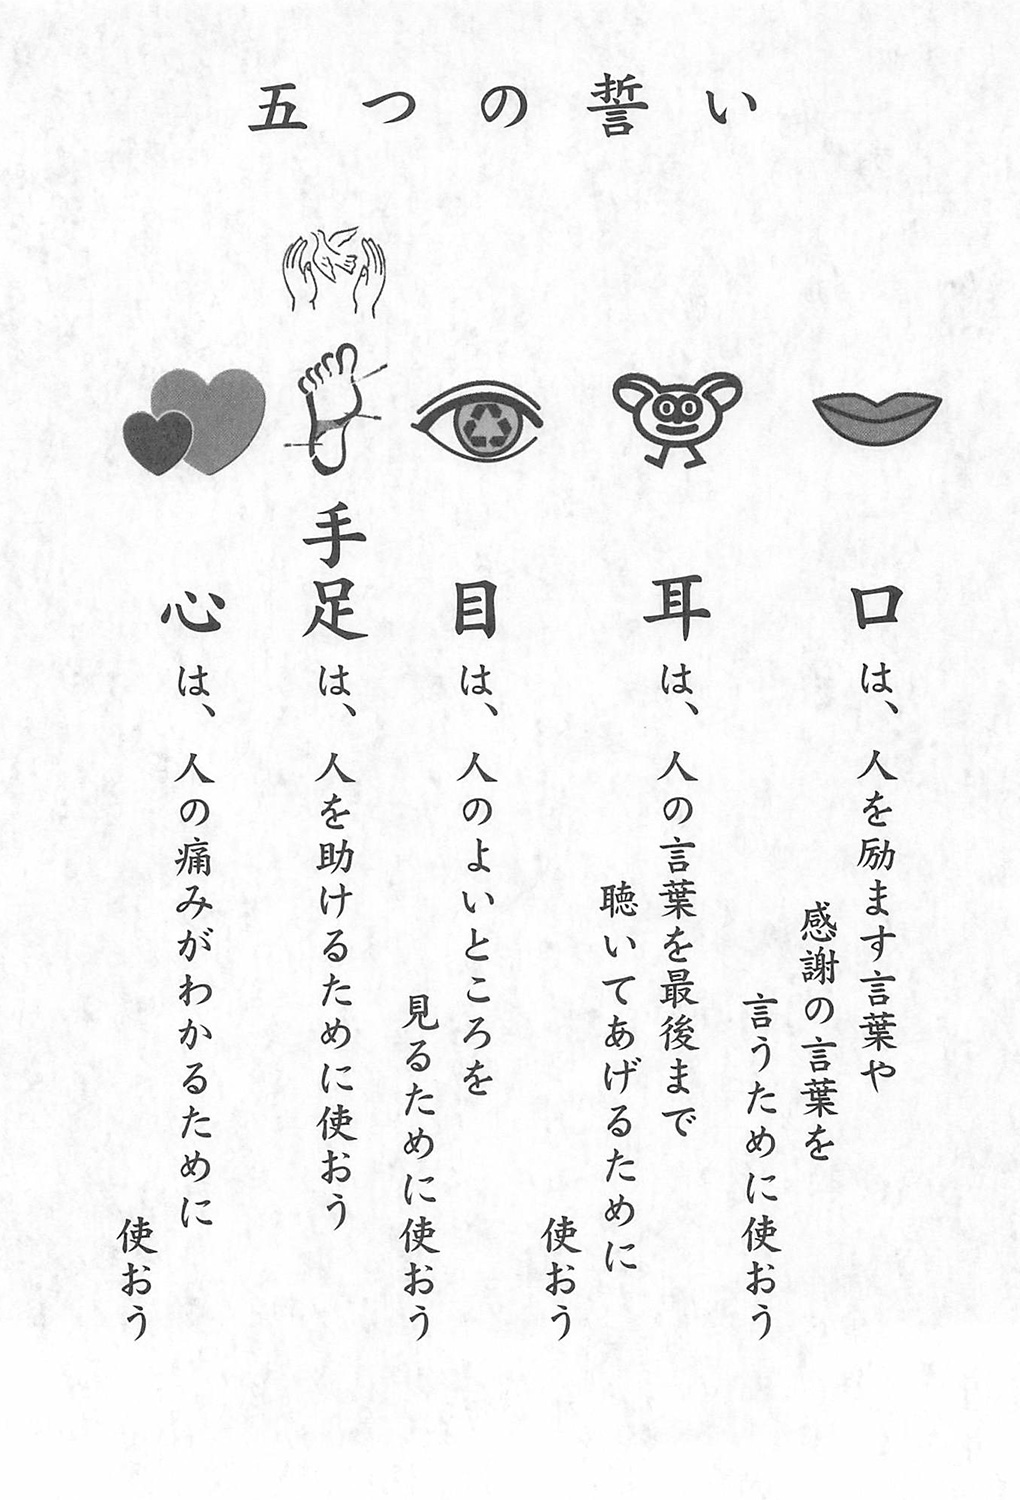 五つの誓い
口は、人を励ます言葉や
感謝の言葉を
言うために使おう
耳は、人の言葉を最後まで
聴いてあげるために
使おう
目は、人のよいところを
見るために使おう
手足は、人を助けるために使おう
心は、人の痛みがわかるために
使おう